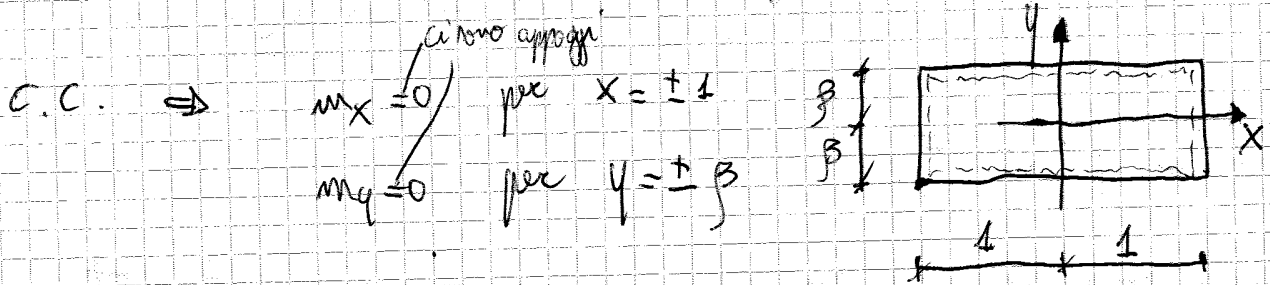 ci sono appoggi
C.C. ⇒ mx = 0 per x = ± 1
my = 0 per y = ± β
y
β
β
x
1 1